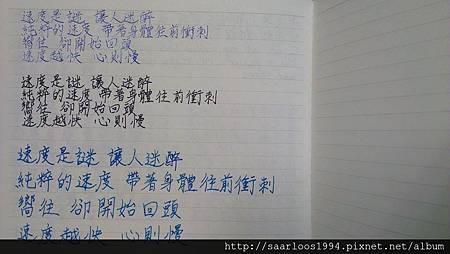 速度是謎 讓人迷醉
純粹的速度 帶著身體往前衝刺
嚮往 卻開始回頭
速度越快 心則慢
速度是謎 讓人迷醉
純粹的速度 帶著身體往前衝刺
嚮往 卻開始回頭
速度越快 心則慢
速度是謎 讓人迷醉
純粹的速度 帶著身體往前衝刺
嚮往 卻開始回頭
速度越快 心則慢
http://saarloos1994.pixnet.net/album